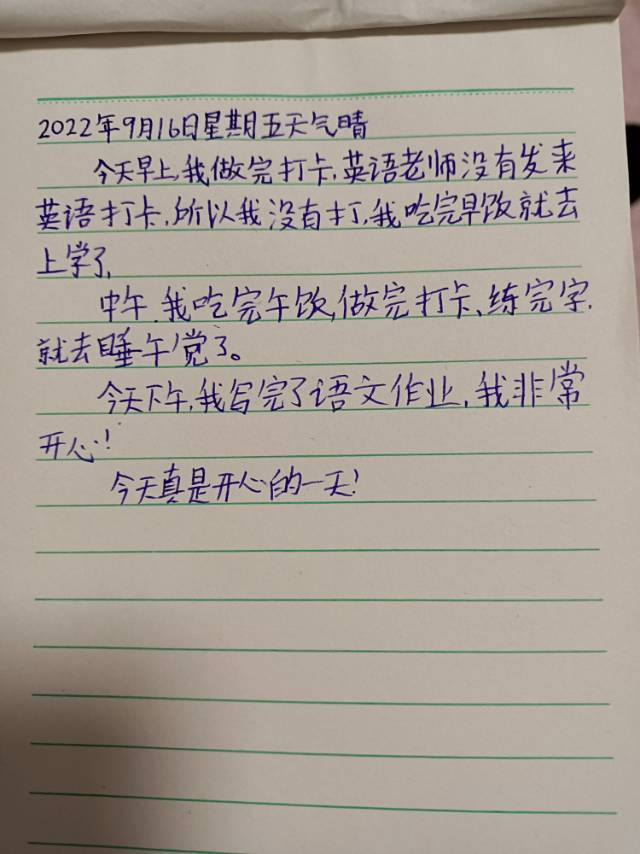 2022年9月16日星期五天气晴
今天早上,我做完打卡,英语老师没有发来
英语打卡,所以我没有打,我吃完早饭就去
上学了,
中午,我吃完午饭,做完打卡、练完字,
就去睡午觉了。
今天下午,我写完了语文作业,我非常
开心!
今天真是开心的一天!